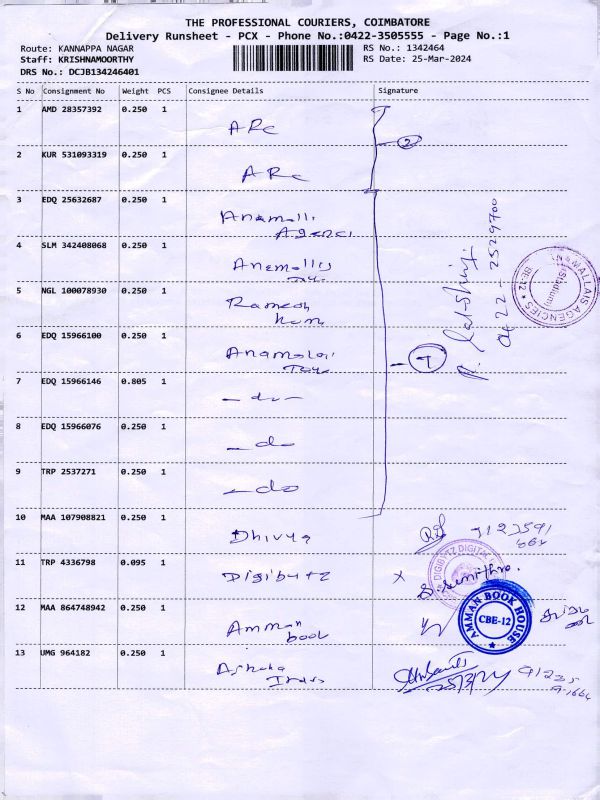 THE PROFESSIONAL COURIERS, COIMBATORE
Delivery Runsheet - PCX - Phone No.:0422-3505555 - Page No.:1
Route: KANNAPPA NAGAR
RS No.: 1342464
Staff: KRISHNAMOORTHY
RS Date: 25-Mar-2024
DRS No.: DCJB134246401
S No Consignment No Weight PCS Consignee Details Signature
1 AMD 28357392 0.250 1
ARC
2
2 KUR 531093319 0.250 1
ARC
3 EDQ 25632687 0.250 1
Anamalli
Agenci
4 SLM 342408068 0.250 1
5 NGL 100078930 0.250 1
Ramesh
0422-2529700
ANAMALLAIS AGENCIES
6 EDQ 15966100 0.250 1
7
7 EDQ 15966146 0.805 1
-do-
8 EDQ 15966076 0.250 1
-do-
9 TRP 2537271 0.250 1
-do
10 MAA 107908821 0.250 1
Dhivya
11 TRP 4336798 0.095 1
Digibytz
DIGIBYTZ DIGITAL
x
12 MAA 864748942 0.250 1
Amman
book
AMMAN BOOK HOUSE
CBE-12
13 UMG 964182 0.250 1
Ashoka